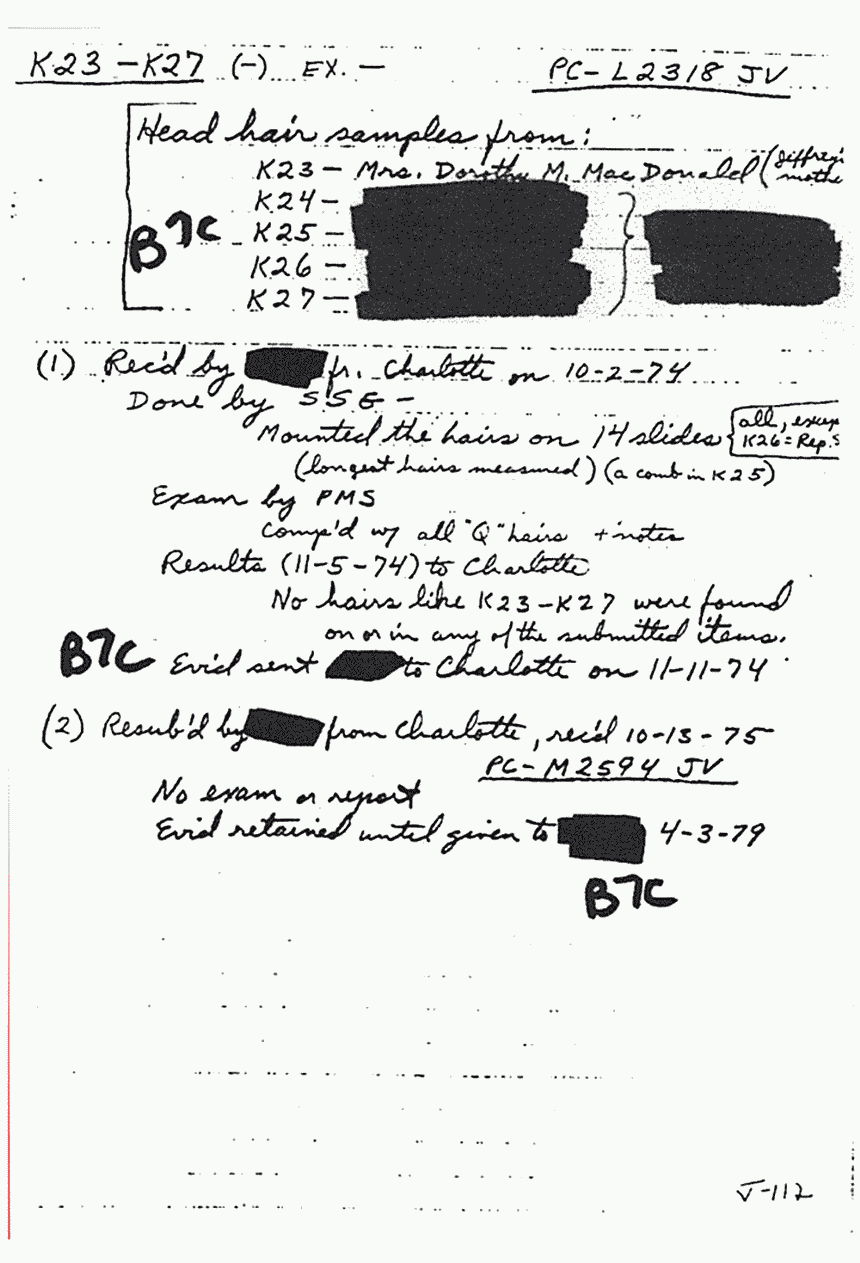 K23 - K27 (-) EX. — PC- L2318 JV
Head hair samples from:
K23 - Mrs. Dorothy M. MacDonald (
K24 -
K25 -
B7C
K26 -
K27 -
(1) Rec'd by fr. Charlotte on 10-2-74
Done by SSG -
Mounted the hairs on 14 slides { all, excep
K26 = Rep. S
(longest hairs measured) (a comb in K25)
Exam by PMS
Comp'd w/ all "Q" hairs + notes
Results (11-5-74) to Charlotte
No hairs like K23-K27 were found
on or in any of the submitted items.
B7C Evid sent to Charlotte on 11-11-74
(2) Resub'd by from Charlotte, rec'd 10-13-75
PC- M2594 JV
No exam or report
Evid retained until given to 4-3-79
B7C
J-112